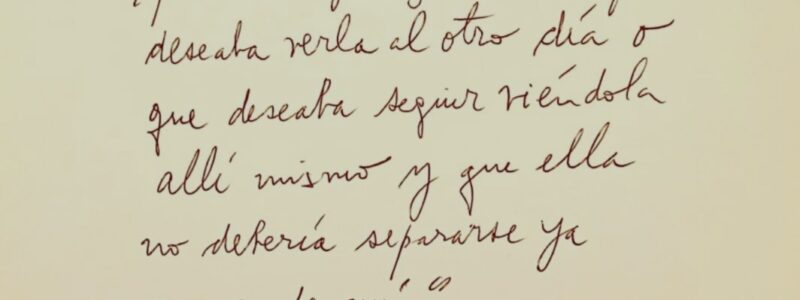 deseaba verla al otro día o
que deseaba seguir viéndola
allí mismo y que ella
no debería separarse ya